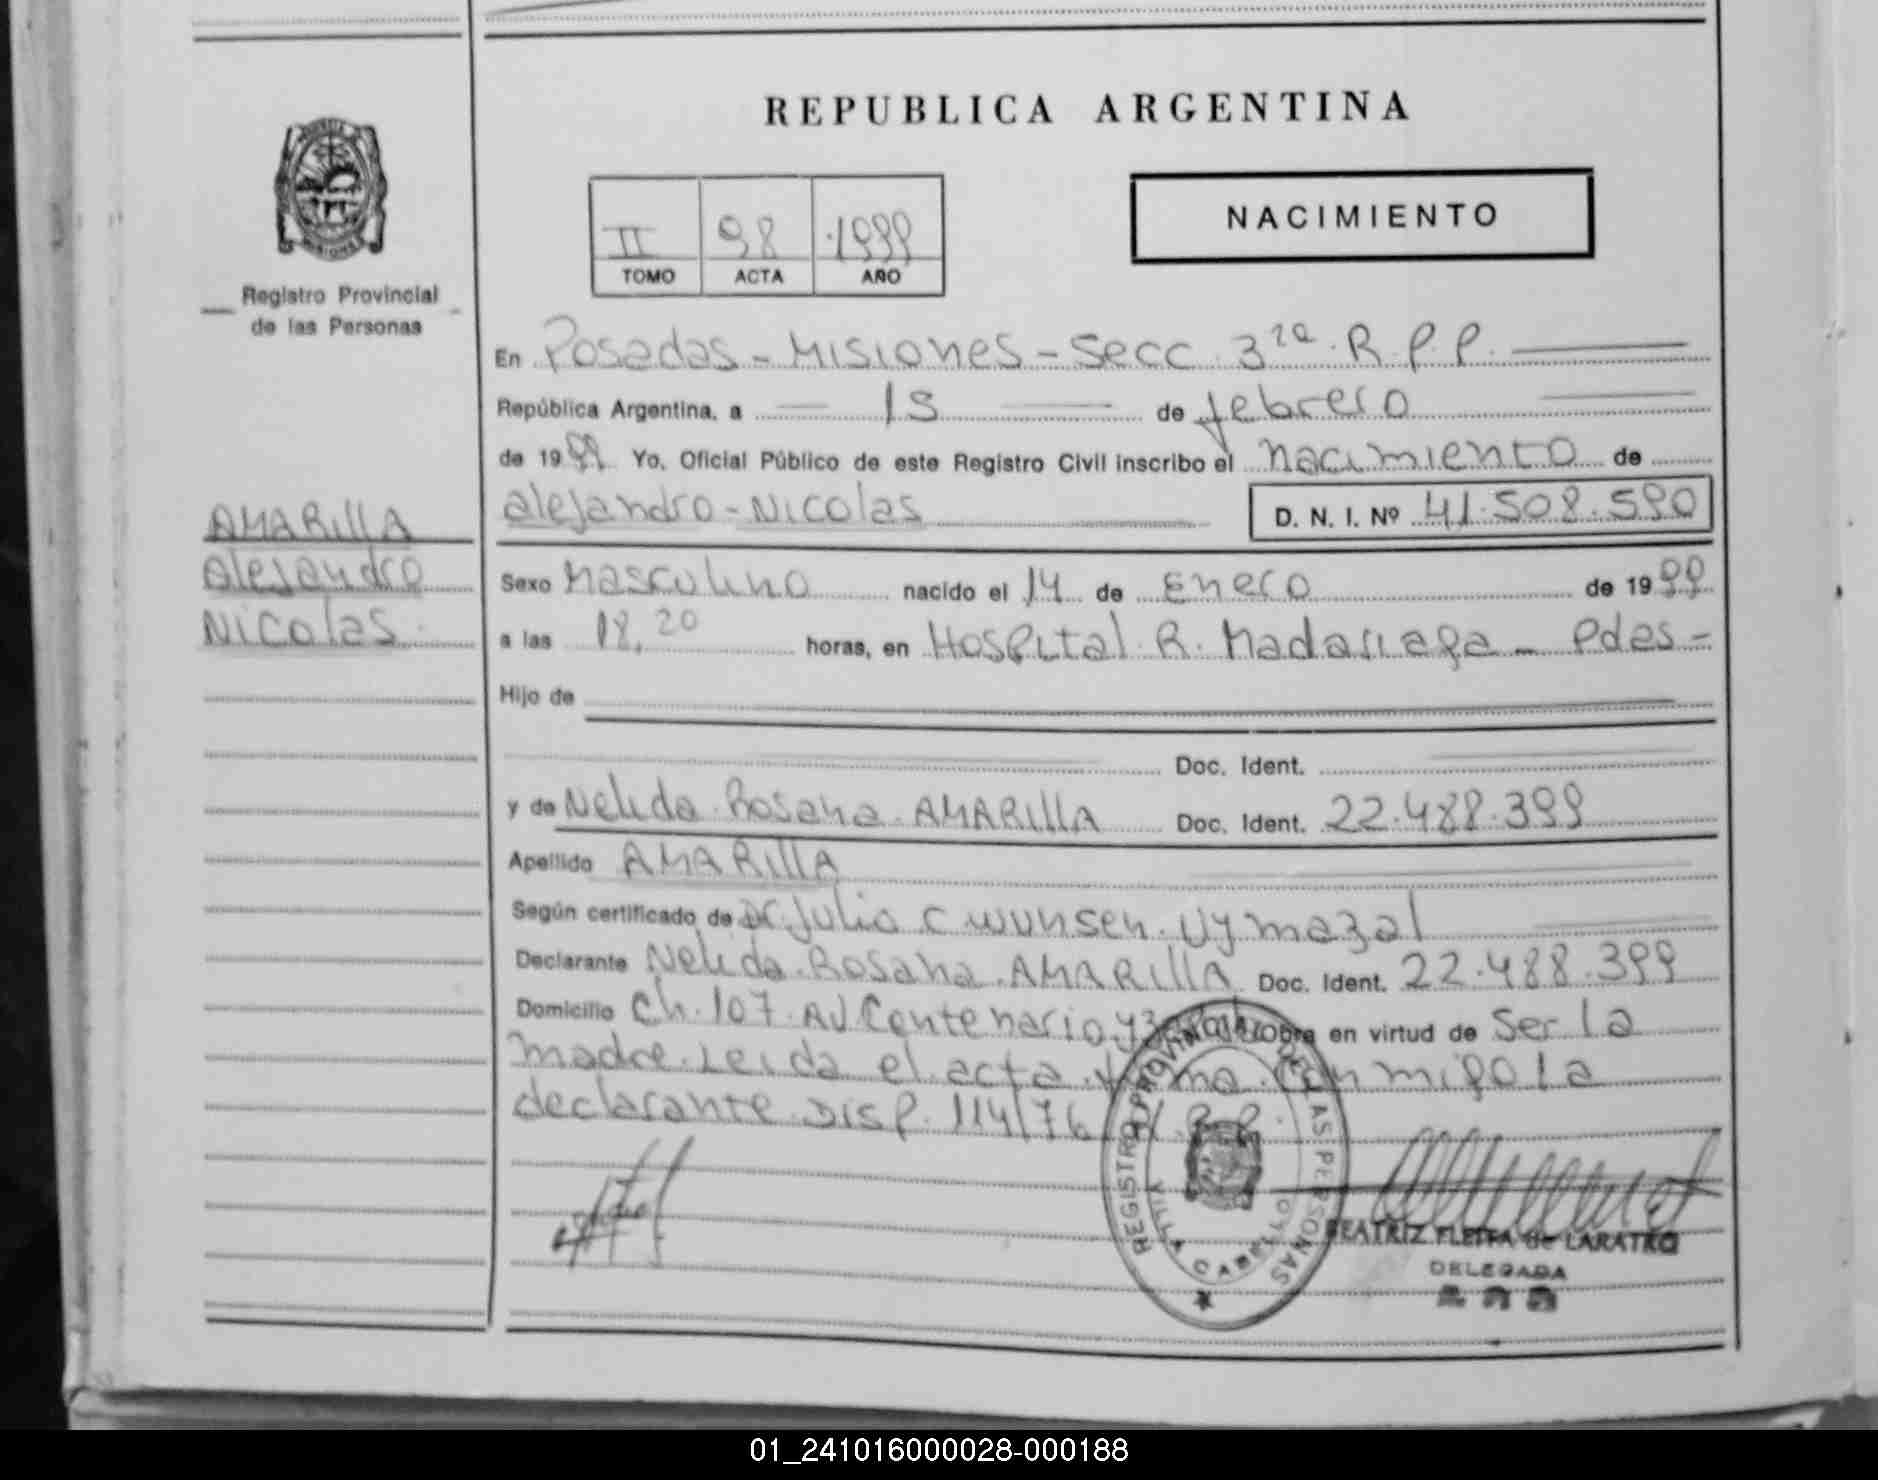 REPUBLICA ARGENTINA
II 98 1999
TOMO ACTA AÑO
NACIMIENTO
Registro Provincial
de las Personas
AMARILLA
Alejandro
Nicolas
En Posadas - Misiones - Secc. 3ra. R. P. P.
República Argentina, a 15 de febrero
de 1999 Yo, Oficial Público de este Registro Civil inscribo el nacimiento de
Alejandro - Nicolas D. N. I. Nº 41.508.590
Sexo Masculino nacido el 14 de Enero de 1999
a las 18,20 horas, en Hospital R. Madariaga - Pdas -
Hijo de
Doc. Ident.
y de Nelida Rosana AMARILLA Doc. Ident. 22.488.399
Apellido AMARILLA
Según certificado de Dr. Julio C Wunsen Uy mazal
Declarante Nelida Rosana AMARILLA Doc. Ident. 22.488.399
Domicilio Ch. 107 AV Centenario y obra en virtud de Ser la
madre. Leida el acta firma con migo la
declarante Disp. 114/76 R.P.P.
REGISTRO PROVINCIAL DE LAS PERSONAS
VILLA CABELLO
BEATRIZ de LARATRO
DELEGADA
01_241016000028-000188